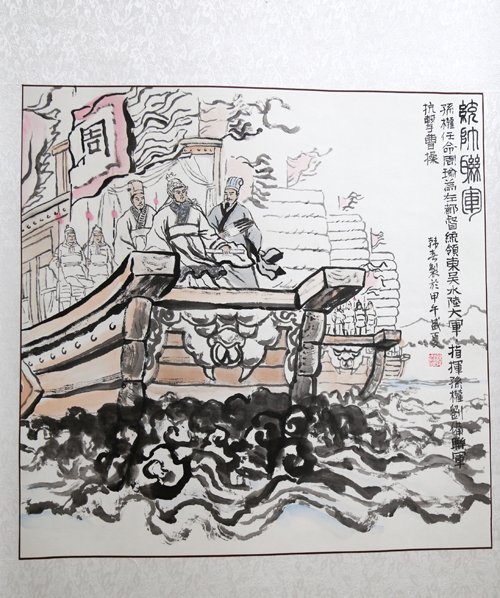 統帅聯軍
孫權任命周瑜為左都督統領東吴水陸大軍指揮孫權劉備聯軍
抗擊曹操
韩亮製於甲午盛夏
周